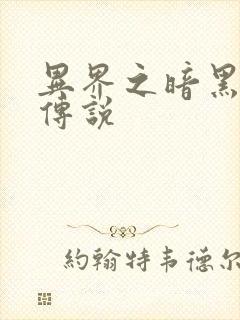 異界之暗黑
傳說
約翰特韦德尔